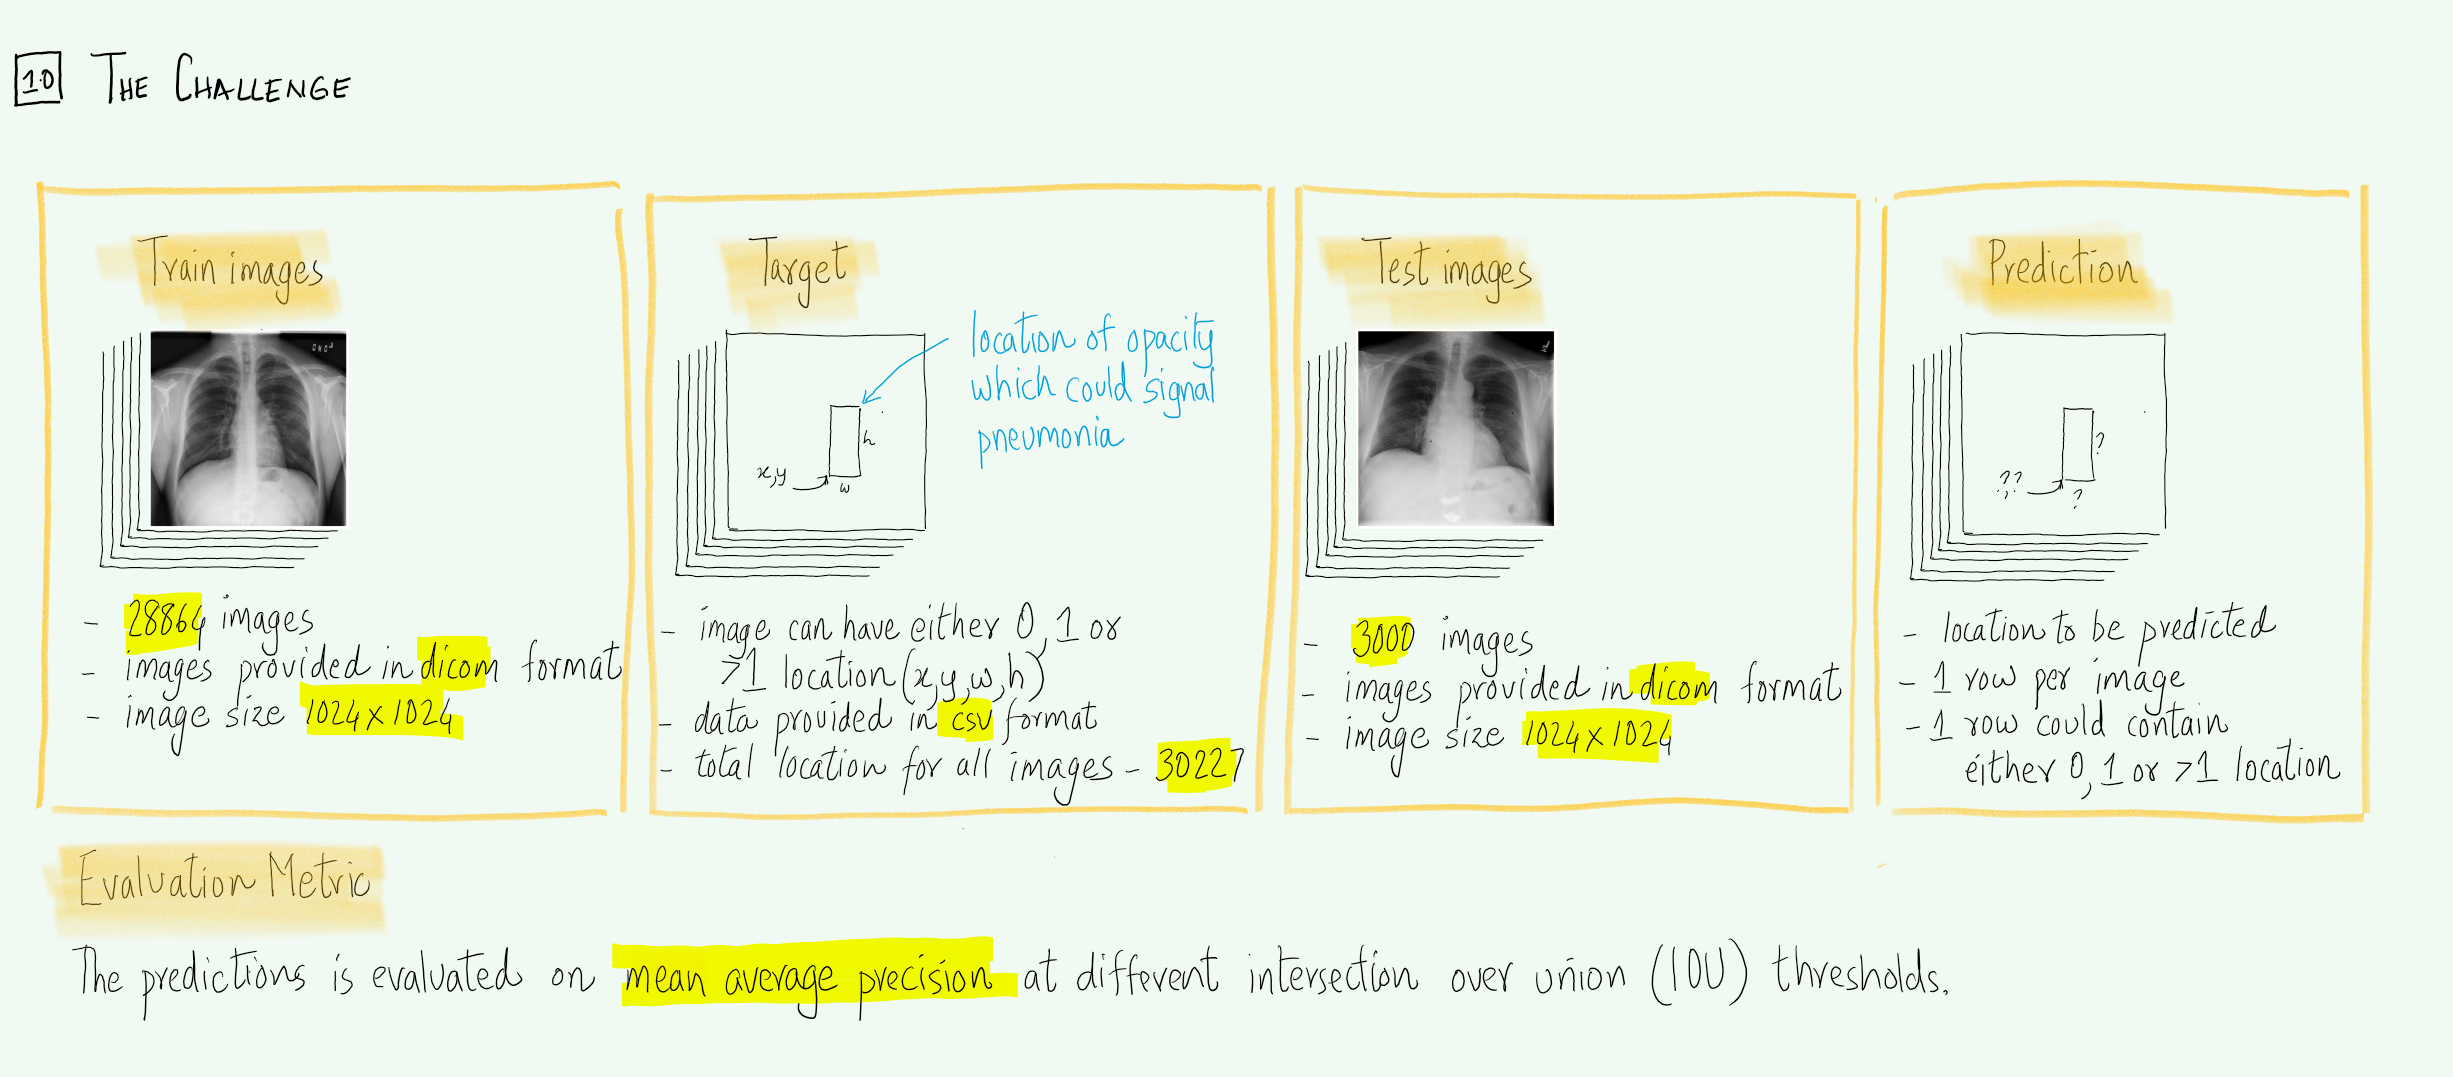 1.0 THE CHALLENGE
Train images
- 28864 images
- images provided in dicom format
- image size 1024 x 1024
Target
location of opacity
which could signal
pneumonia
h
x,y
w
- image can have either 0, 1 or
>1 location (x,y,w,h)
- data provided in csv format
- total location for all images - 30227
Test images
- 3000 images
- images provided in dicom format
- image size 1024 x 1024
Prediction
?
?,?
?
- location to be predicted
- 1 row per image
- 1 row could contain
either 0, 1 or >1 location
Evaluation Metric
The predictions is evaluated on mean average precision at different intersection over union (IOU) thresholds.